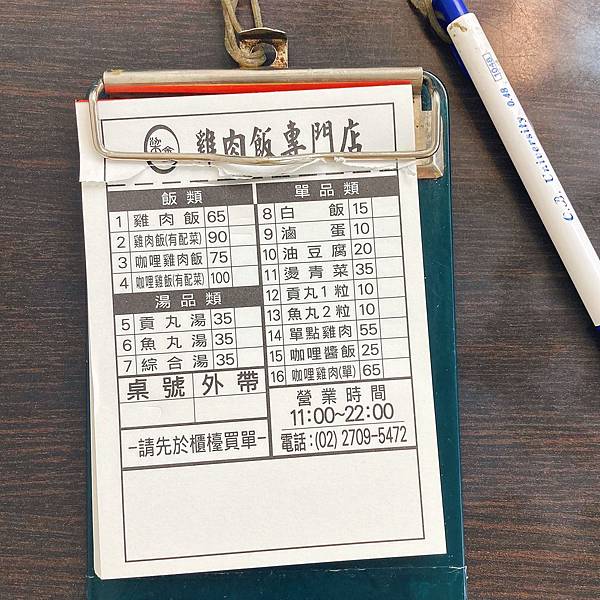 雞肉飯專門店
飯類
1 雞肉飯 65
2 雞肉飯(有配菜) 90
3 咖哩雞肉飯 75
4 咖哩雞飯(有配菜) 100
湯品類
5 貢丸湯 35
6 魚丸湯 35
7 綜合湯 35
桌號 外帶
–請先於櫃檯買單–
單品類
8 白飯 15
9 滷蛋 10
10 油豆腐 20
11 燙青菜 35
12 貢丸1粒 10
13 魚丸2粒 10
14 單點雞肉 55
15 咖哩醬飯 25
16 咖哩雞肉(單) 65
營業時間
11:00~22:00
電話:(02) 2709-5472
1046
C.B. University 0.48